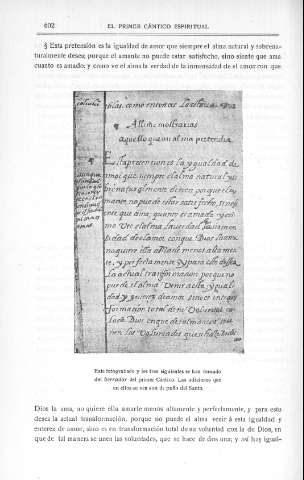 602 EL PRIMER CÁNTICO ESPIRITUAL
§ Esta pretensión es la igualdad de amor que siempre el alma natural y sobrena-
turalmente desea; porque el amante no puede estar satisfecho, sino siente que ama
cuanto es amado; y como ve el alma la verdad de la inmensidad de el amor con que
Allí me mostrarías
aquello que mi alma pretendía
Esta pretension es la ygualdad de
amor que siempre el alma natural y so
brenaturalmente desea porque el a
mante no puede estar satisfecho si no si
ente que ama quanto es amado y co
mo ve el alma la verdad de la inmen
sidad de el amor con que Dios la ama
no quiere ella amarle menos altamen
te, y perfectamente y para esto desea
la actual transformacion porque no
puede el alma venir a esta ygual
dad y entereza de amor sino es en trans
formacion total de su voluntad con
la de Dios en que de tal manera se u
nen las voluntades que se haze de dos
Este fotograbado y los tres siguientes se han tomado
del borrador del primer Cántico. Las adiciones que
en ellos se ven son de puño del Santo.
Dios la ama, no quiere ella amarle menos altamente y perfectamente, y para esto
desea la actual transformación, porque no puede el alma venir á esta igualdad y
entereza de amor, sino es en transformación total de su voluntad con la de Dios, en
que de tal manera se unen las voluntades, que se hace de dos una; y así hay igual-